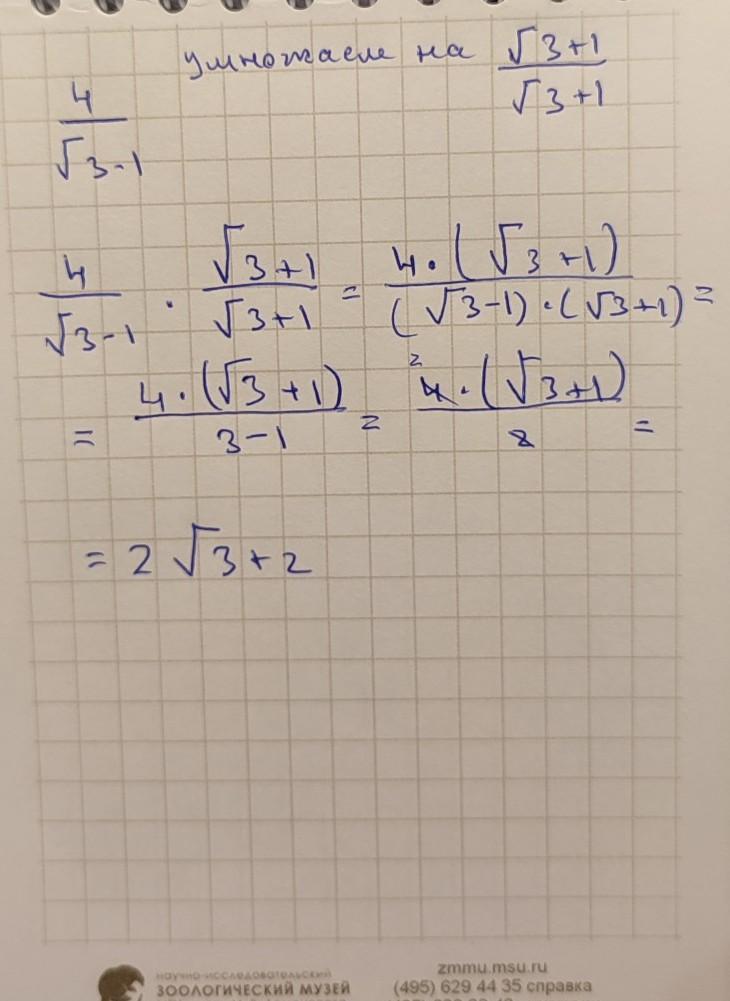 умножаем на (√3+1)/(√3+1)
4/(√3-1)
4/(√3-1) · (√3+1)/(√3+1) = (4·(√3+1))/((√3-1)·(√3+1)) =
= (4·(√3+1))/(3-1) = (4·(√3+1))/2 =
= 2√3+2
НАУЧНО-ИССЛЕДОВАТЕЛЬСКИЙ
ЗООЛОГИЧЕСКИЙ МУЗЕЙ
zmmu.msu.ru
(495) 629 44 35 справка